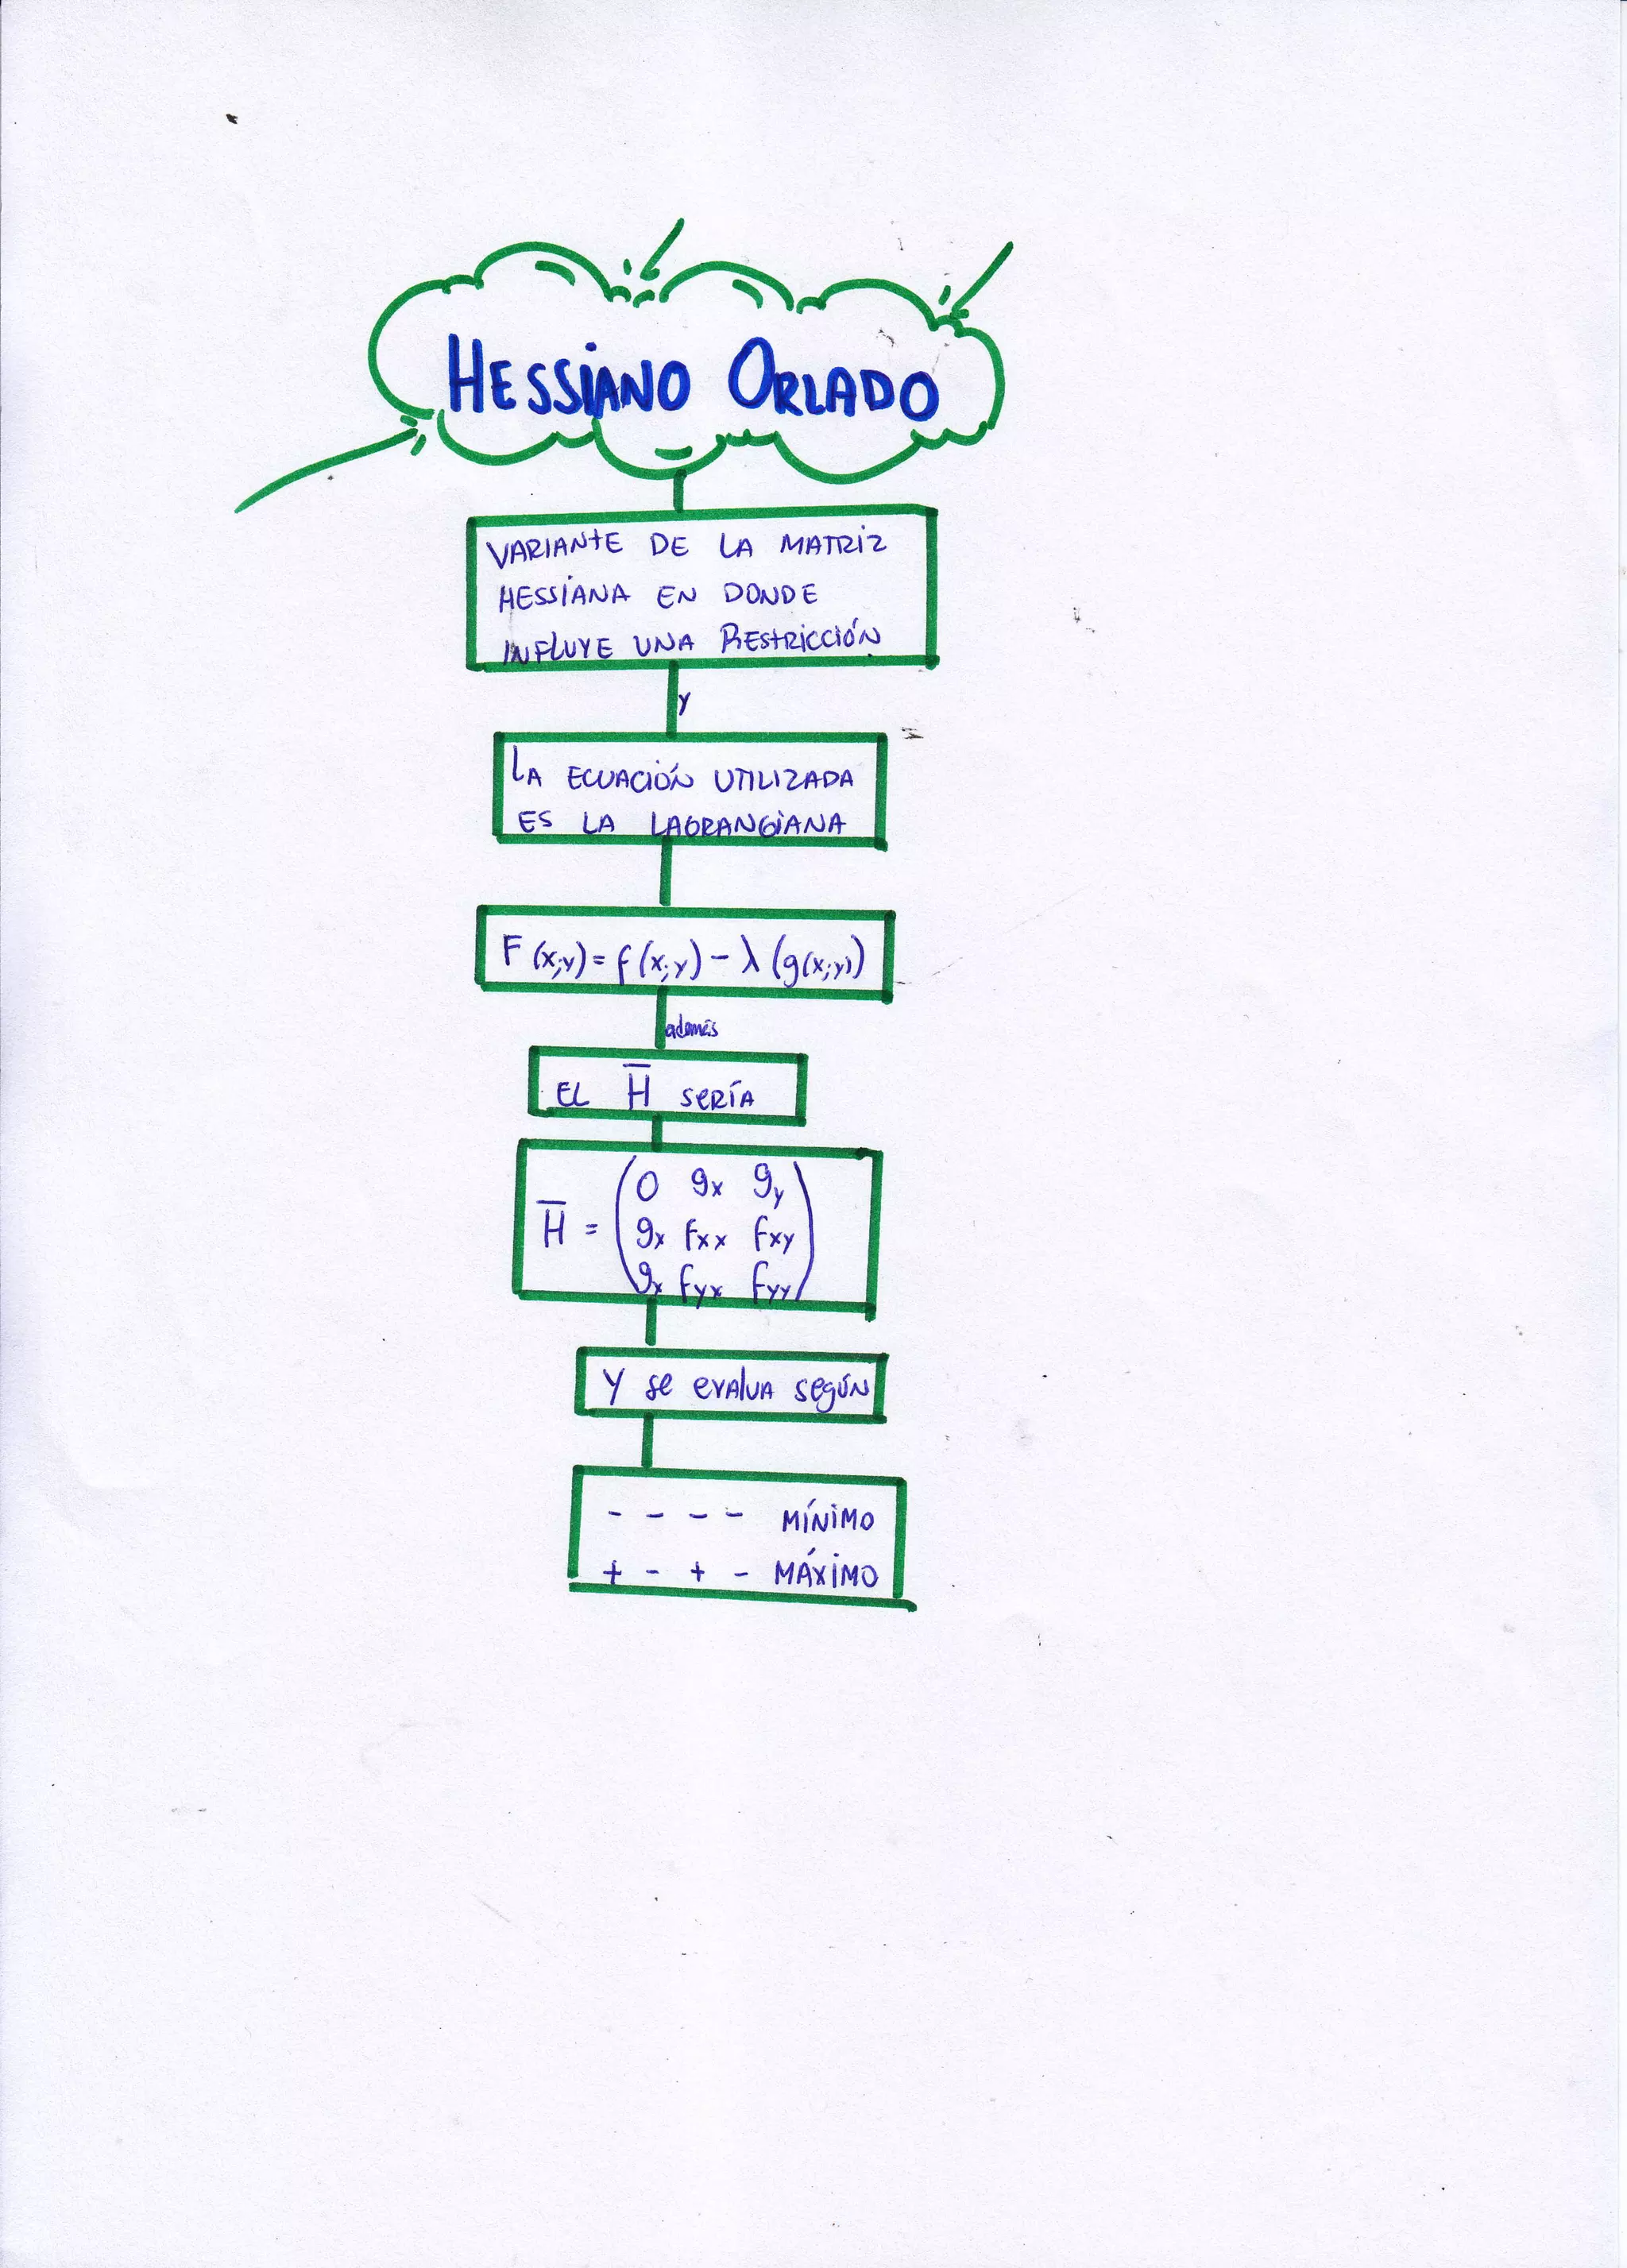 HESSIANO ORLADO
VARIANTE DE LA MATRIZ
HESSIANA EN DONDE
INFLUYE UNA RESTRICCIÓN
y
LA ECUACIÓN UTILIZADA
ES LA LAGRANGIANA
F(x;y) = f(x;y) - λ (g(x;y))
además
EL H̅ SERÍA
0 gx gy
H̅ = gx fxx fxy
gx fyx fyy
Y se evalua según
- - - - MÍNIMO
+ - + - MÁXIMO